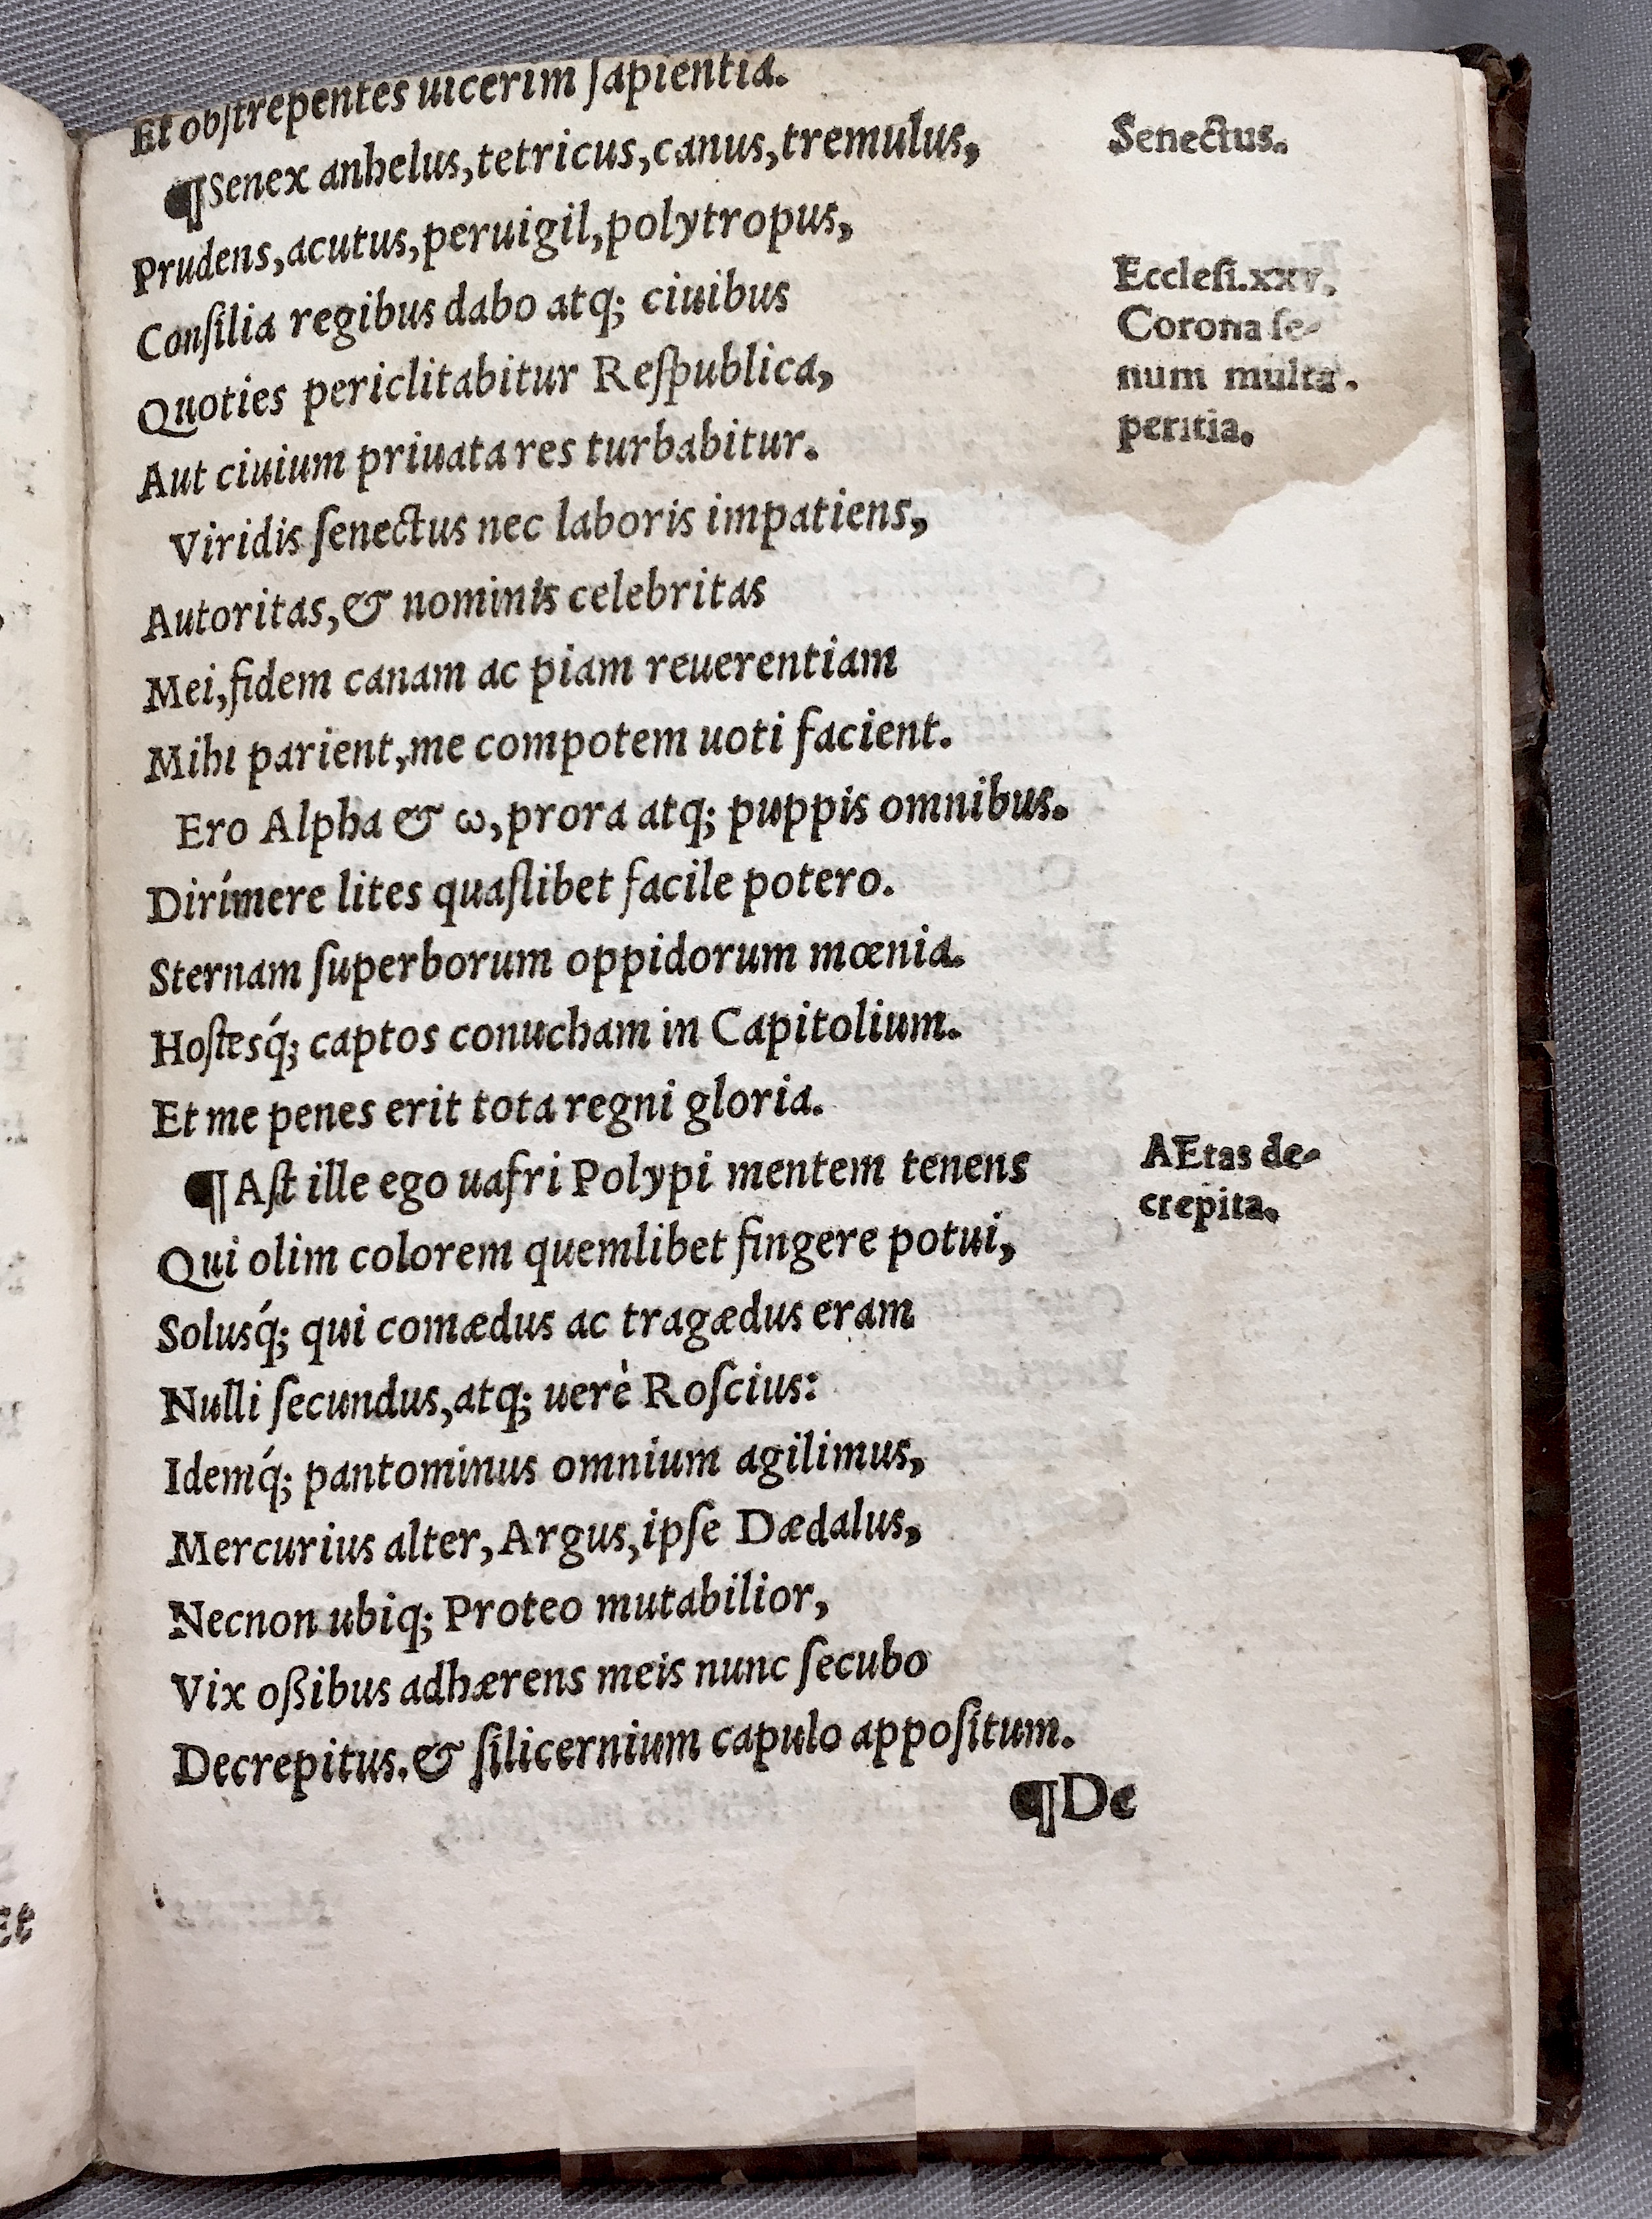 Et obſtrepentes uicerim ſapientia.
¶Senex anhelus,tetricus,canus,tremulus,
Prudens,acutus,peruigil,polytropus,
Conſilia regibus dabo atq; ciuibus
Quoties periclitabitur Reſpublica,
Aut ciuium priuata res turbabitur.
Viridis ſenectus nec laboris impatiens,
Autoritas,& nominis celebritas
Mei,fidem canam ac piam reuerentiam
Mihi parient,me compotem uoti facient.
Ero Alpha & ω,prora atq; puppis omnibus.
Dirímere lites quaſlibet facile potero.
Sternam ſuperborum oppidorum mœnia.
Hoſtesq́; captos conucham in Capitolium.
Et me penes erit tota regni gloria.
¶Aſt ille ego uafri Polypi mentem tenens
Qui olim colorem quemlibet fingere potui,
Solusq́; qui comædus ac tragædus eram
Nulli ſecundus,atq; uerè Roſcius:
Idemq́; pantominus omnium agilimus,
Mercurius alter,Argus,ipſe Dædalus,
Necnon ubiq; Proteo mutabilior,
Vix oßibus adhærens meis nunc ſecubo
Decrepitus.& ſilicernium capulo appoſitum.
¶De
Senectus.
Eccleſi.xxv.
Corona ſe-
num multa
peritia.
AEtas de-
crepita.
Et